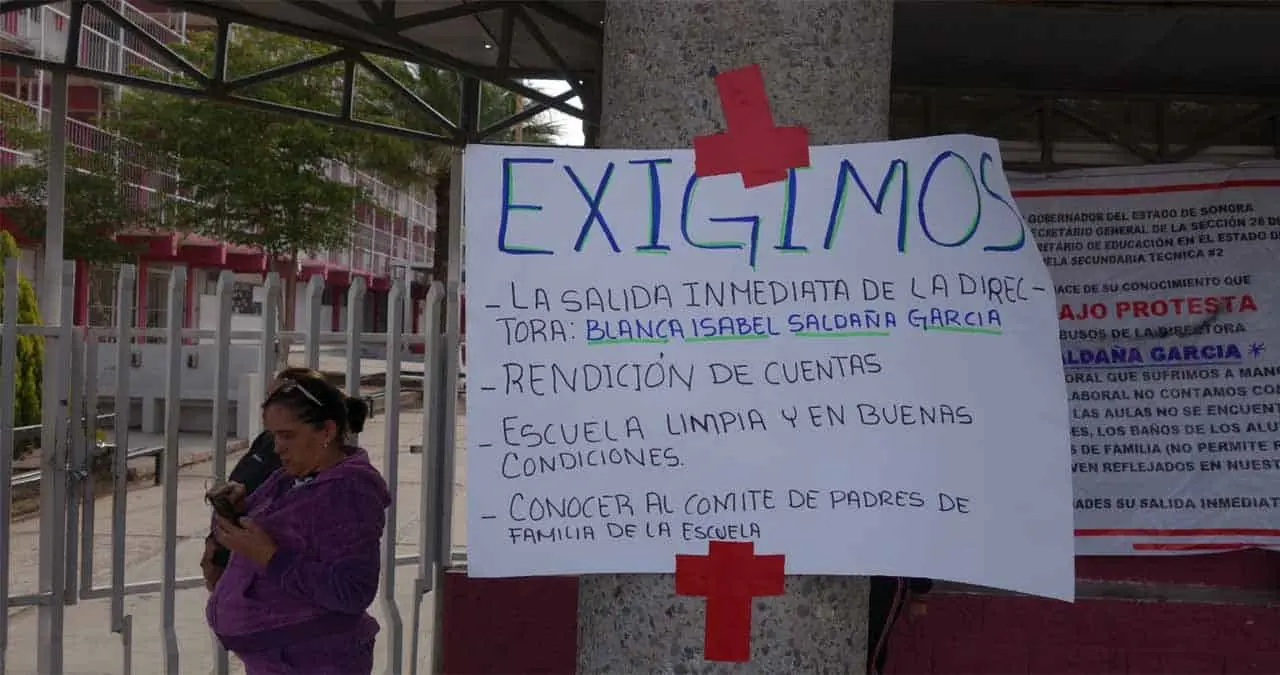 EXIGIMOS
- LA SALIDA INMEDIATA DE LA DIREC-
TORA: BLANCA ISABEL SALDAÑA GARCIA
- RENDICIÓN DE CUENTAS
- ESCUELA LIMPIA Y EN BUENAS
CONDICIONES.
- CONOCER AL COMITE DE PADRES DE
FAMILIA DE LA ESCUELA
GOBERNADOR DEL ESTADO DE SONORA
SECRETARIO GENERAL DE LA SECCIÓN 28 DE
DE EDUCACIÓN EN EL ESTADO DE
SECUNDARIA TECNICA #2
DE SU CONOCIMIENTO QUE
PROTESTA
DE LA DIRECTORA
SALDAÑA GARCIA *
QUE SUFRIMOS A
NO CONTAMOS
LAS AULAS NO SE
LOS BAÑOS DE LOS
DE FAMILIA (NO PERMITE
REFLEJADOS EN
SU SALIDA